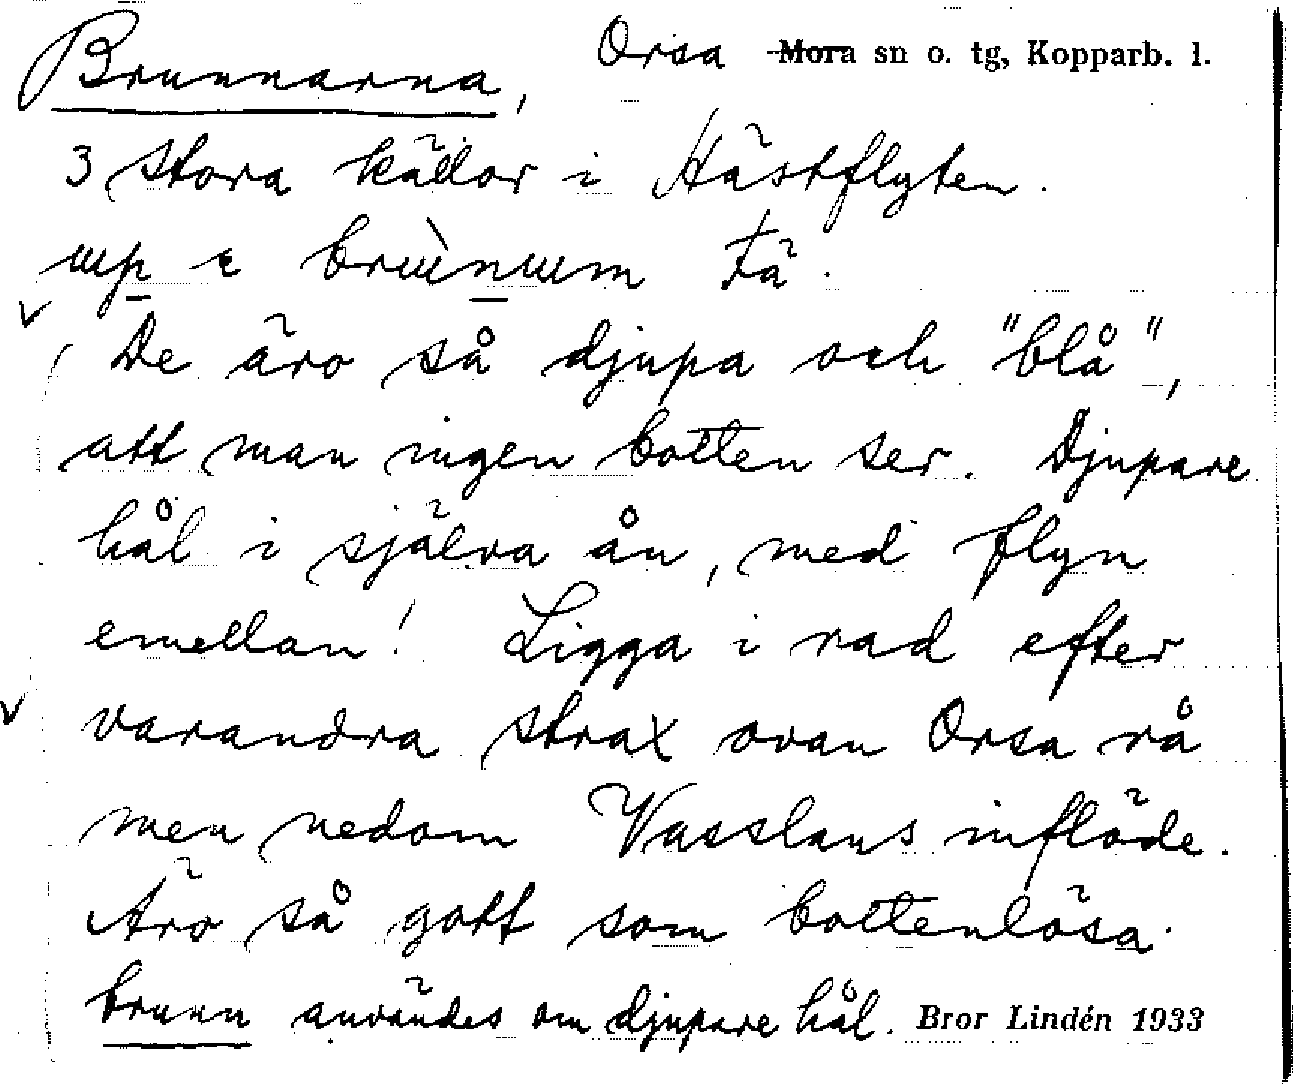 Brunnarna, Orsa Mora sn o. tg, Kopparb. l.
3 stora källor i Hästflyten.
De äro så djupa och "blå",
att man ingen botten ser. Djupare
hål i själva ån, med flyn
emellan! Ligga i rad efter
varandra strax ovan Orsa rå
men nedom Vasslans inflöde.
Äro så gott som bottenlösa.
brunn användes om djupare hål. Bror Lindén 1933